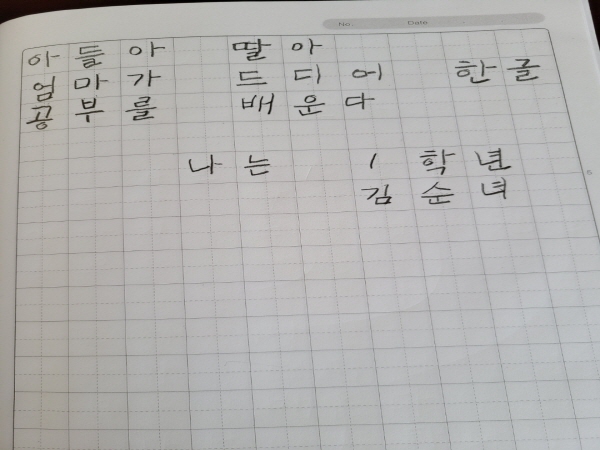 No. Date
아들아 딸아
엄마가 드디어 한글
공부를 배운다
나는 1 학년
김순녀